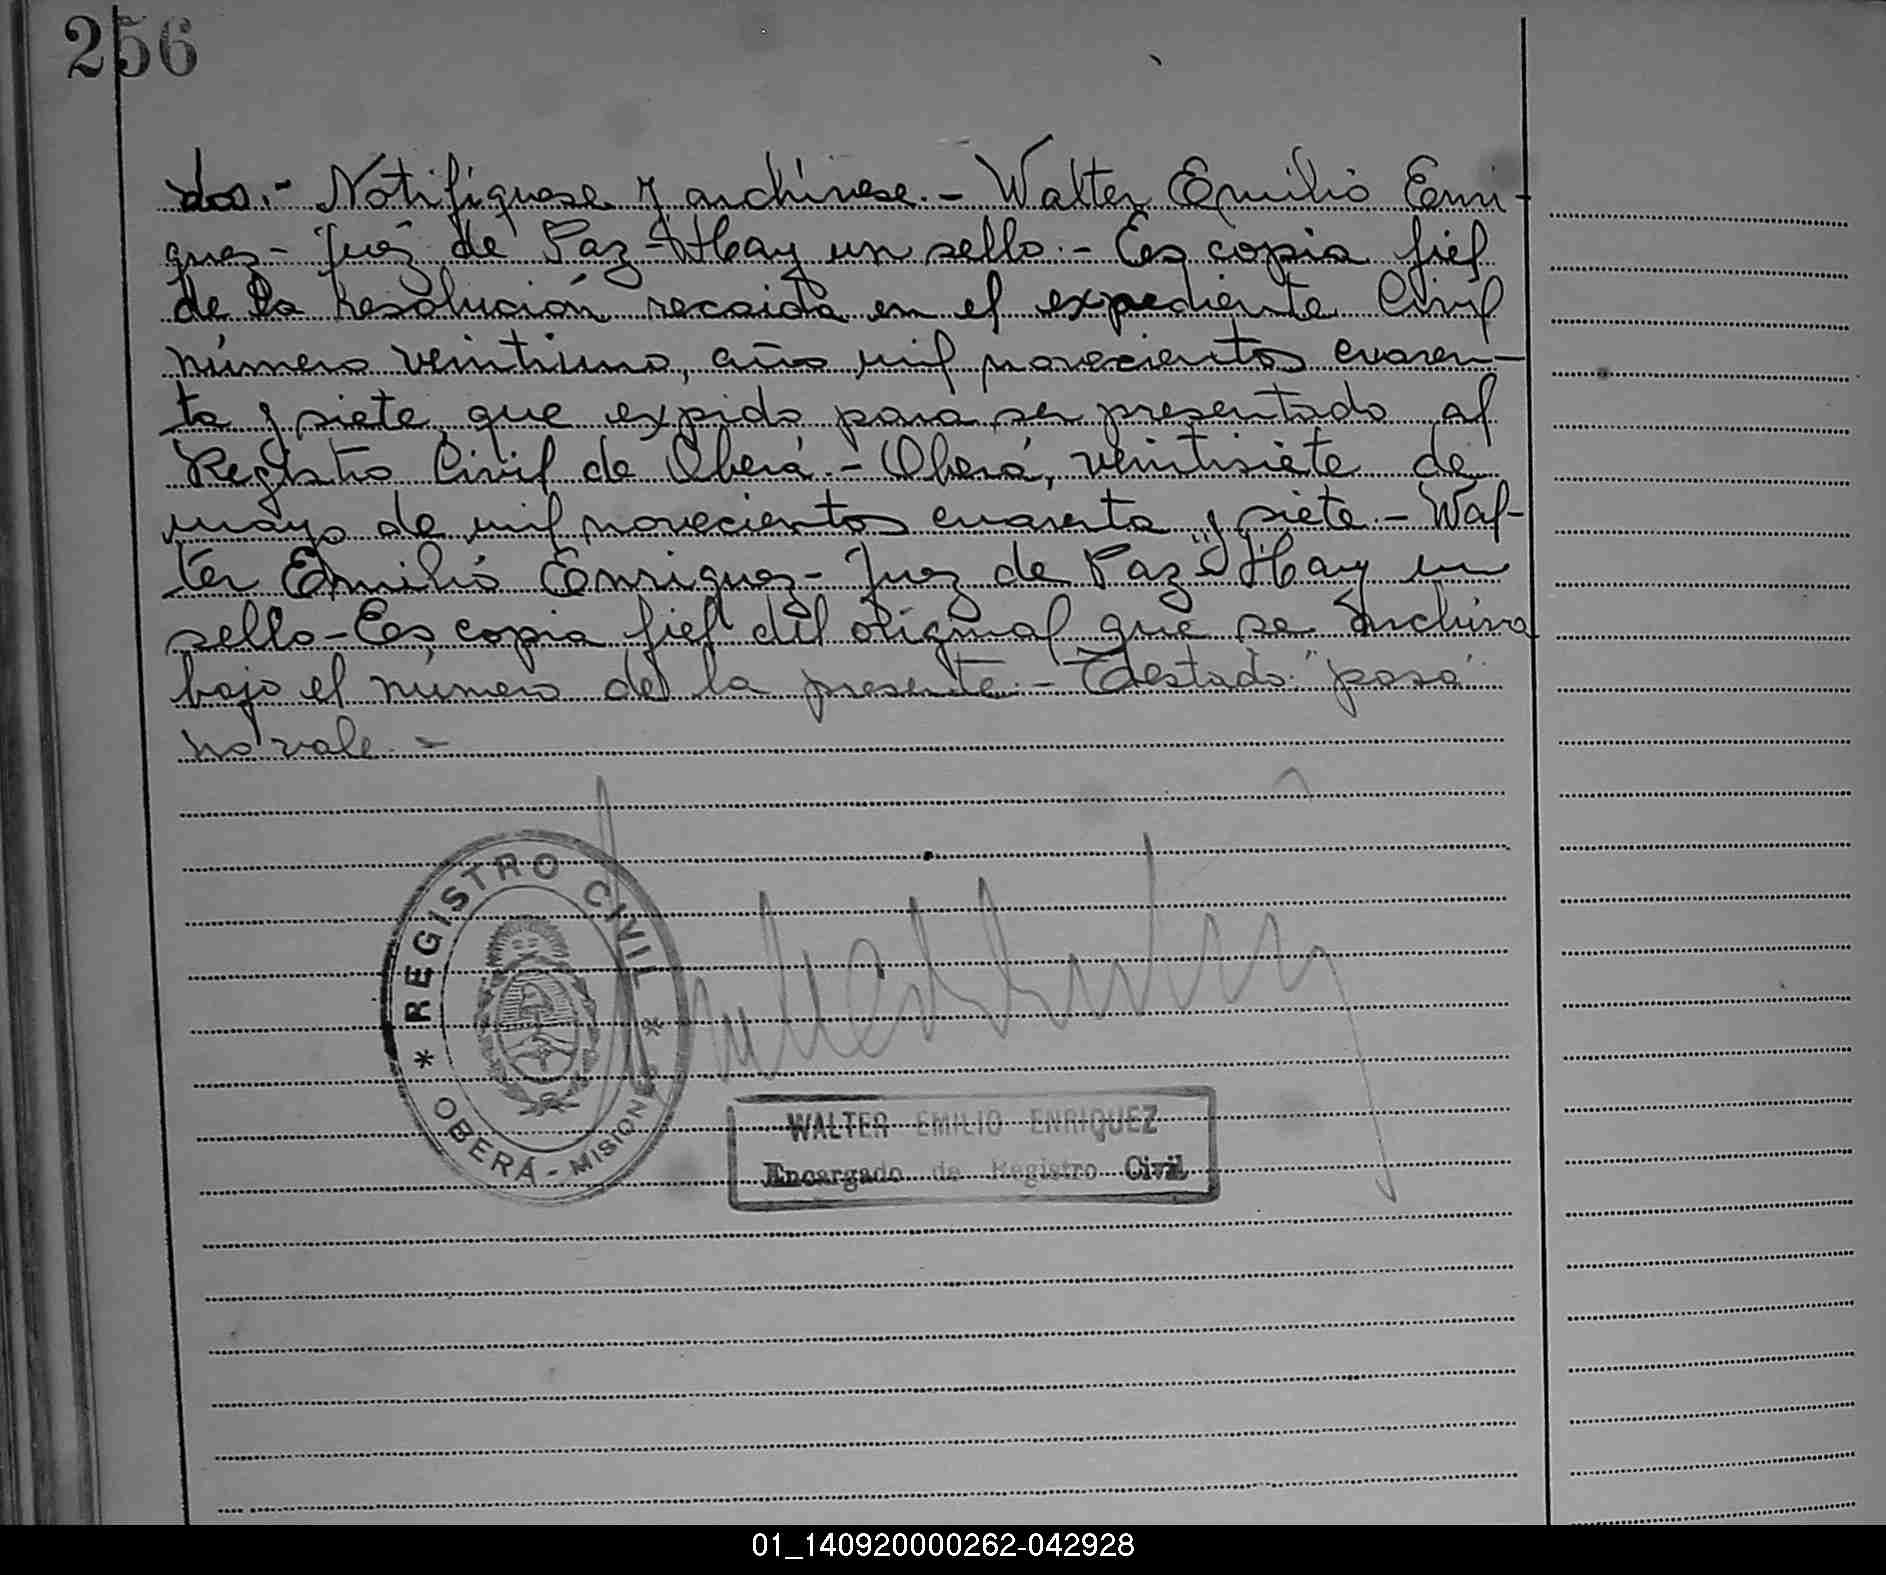 256
dos.- Notifíquese y archívese.- Walter Emilio Enri-
quez- Juez de Paz - Hay un sello.- Es copia fiel
de la resolución recaida en el expediente Civil
número veintiuno, año mil novecientos cuaren-
ta y siete, que expido para ser presentado al
Registro Civil de Oberá.- Oberá, veintisiete de
mayo de mil novecientos cuarenta y siete.- Wal-
ter Emilio Enriquez- Juez de Paz - Hay un
sello- Es copia fiel del original que se archiva
bajo el número de la presente.- Testado: "pasa"
no vale.-
* REGISTRO CIVIL *
OBERÁ - MISIONES
WALTER EMILIO ENRIQUEZ
Encargado de Registro Civil
01_140920000262-042928